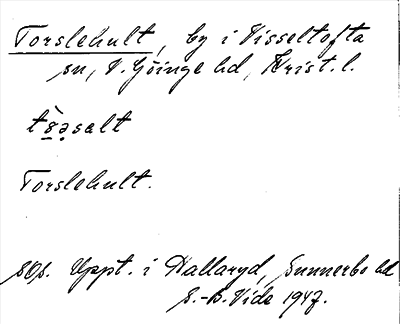 Torslehult, by i Visseltofta
sn, V. Göinge hd, Krist. l.
Torslehult.
SOS. Uppt. i Hallaryd, Sunnerbo hd
S.-B. Vide 1947.